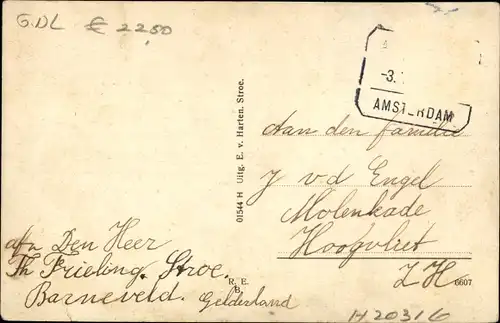 GDL € 2250
-3.
AMSTERDAM
Aan den familie
J v.d Engel
Molenkade
Hoogvliet
Z H
6607
01544 H Uitg. E. v. Harten, Stroe.
afz Den Heer
Th Frieling. Stroe.
Barneveld. Gelderland
R. E.
B.
H20316